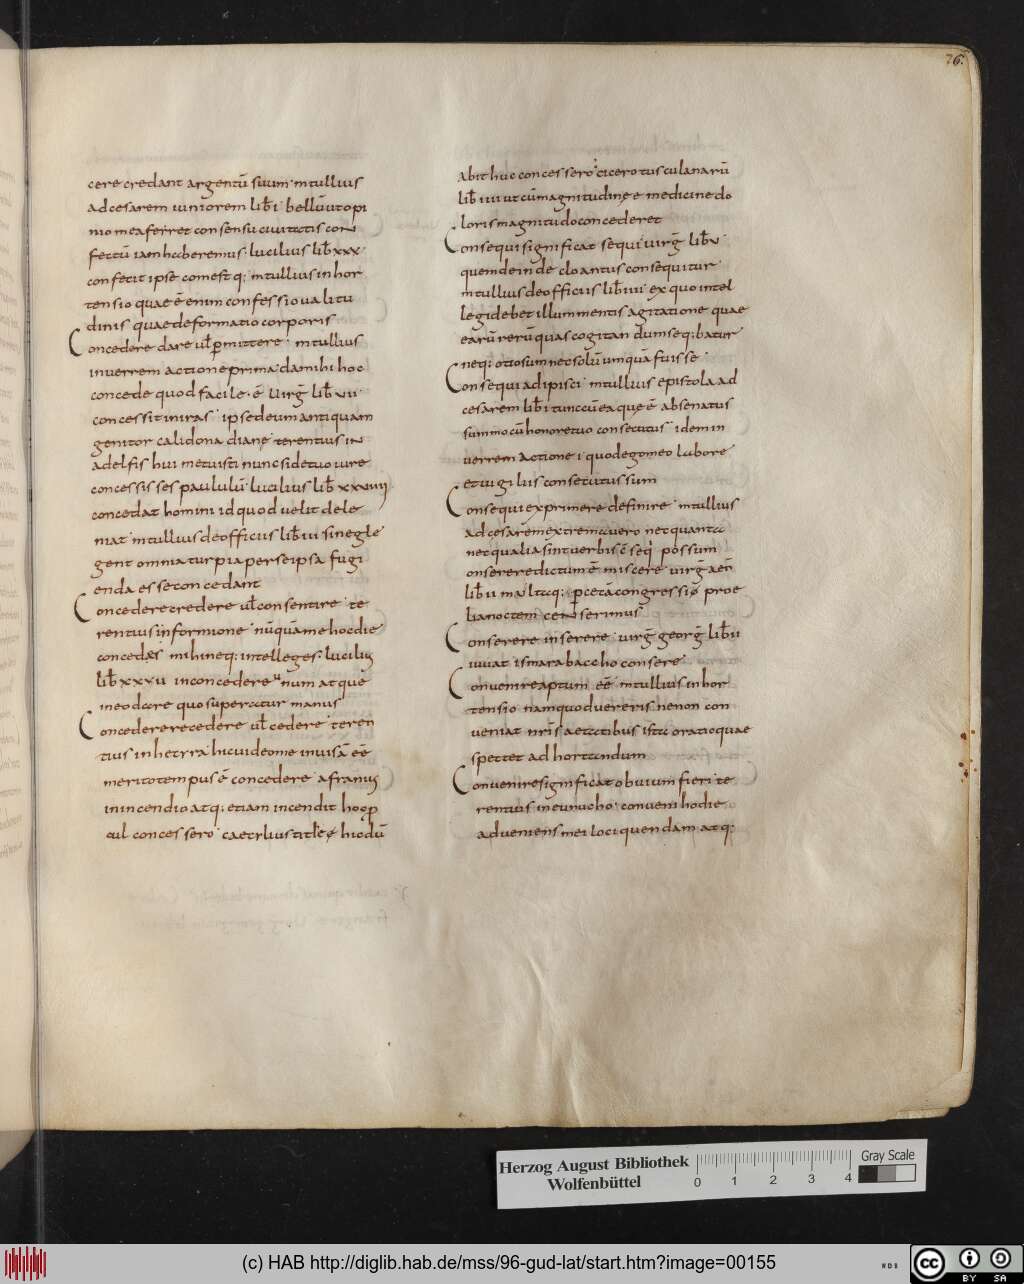 76.
cere credant argentū suum· mtullius
adcesarem iuniorem lib̄ i· bellūutopi
nio meaferret consensu ciuitatis con
fectū iam haberemus· lucilius lib̄ xxx·
confecit ipse comest q; mtullius in hor
tensio quae ē enim confessio ualitu
dinis quae deformatio corporis
Concedere dare ul̄ p̲mittere· mtullius
inuerrem actione prima· da mihi hoc
concede quod facile· ē uirḡ lib̄ vii·
concessit in iras· ipse deum antiquam
genitor calidona dianę terentius in
adelfis hui metuisti nunc side tuo iure
concessis ses paululū· lucilius lib̄ xxviiii
concedat homini id quod uelit dele
niat· mtullius de officiis lib̄ iii sinegle
gent omnia turpia per se ipsa fugi
enda esse concedant
Concedere credere ul̄ consentire· te
rentius in formione· nūquā me hodie
concedes mihi neq; intelleges· lucilius
lib̄ xxvii inconcedere num atque
ineo dare quo superatur manus
Concedere recedere ul̄ cedere· teren
tius in hecyra· huicuideo me inuisā eē
merito tempus ē concedere afranius
in incendio atq; etiam incendit hoc p
cul concessero· caecilius hiodū
abit huc concessero· cicero tusculanarū
lib̄ iiii ut cū magnitudine medicine do
loris magnitudo concederet
Consequi significat sequi· uirḡ lib̄ v·
quem deinde cloantus consequitur·
mtullius de officiis lib̄ iiii· ex quo intel
legi debet illum mentis agitatione quae
earū rerū quas cogitandum seq;batur
neq; otiosum nec solū umquā fuisse·
Consequi adipisci· mtullius epistola ad
cesarem lib̄ i tunc cū ea que ē absenatus
summo cū honore tuo consecutus· idem in
uerrem actione i· quod ego meo labore
et uigiliis consecutus sum
Consequi exprimere definire· mtullius
ad cesarem extrema uero nec quanta
nec qualia sint uerbis cōsequi possum
onserere dictum ē miscere uirḡ aen̄
lib̄ ii multaq; p cecā congressi p̲ roe
lia noctem conserimus·
Conserere inserere· uirḡ georḡ lib̄ ii
iuuat ismara baccho consere·
Conuenire aptum eē mtullius in hor
tensio nam quod uereris ne non con
ueniat nr̄is aetatibus ista oratio quae
spectet ad hortandum
Conuenire significat obuium fieri· te
rentius in eunucho· conueni hodie
adueniens mei loci quendam atq;
Herzog August Bibliothek
Wolfenbüttel
0 1 2 3 4
Gray Scale
(c) HAB http://diglib.hab.de/mss/96-gud-lat/start.htm?image=00155
WDB
CC BY SA